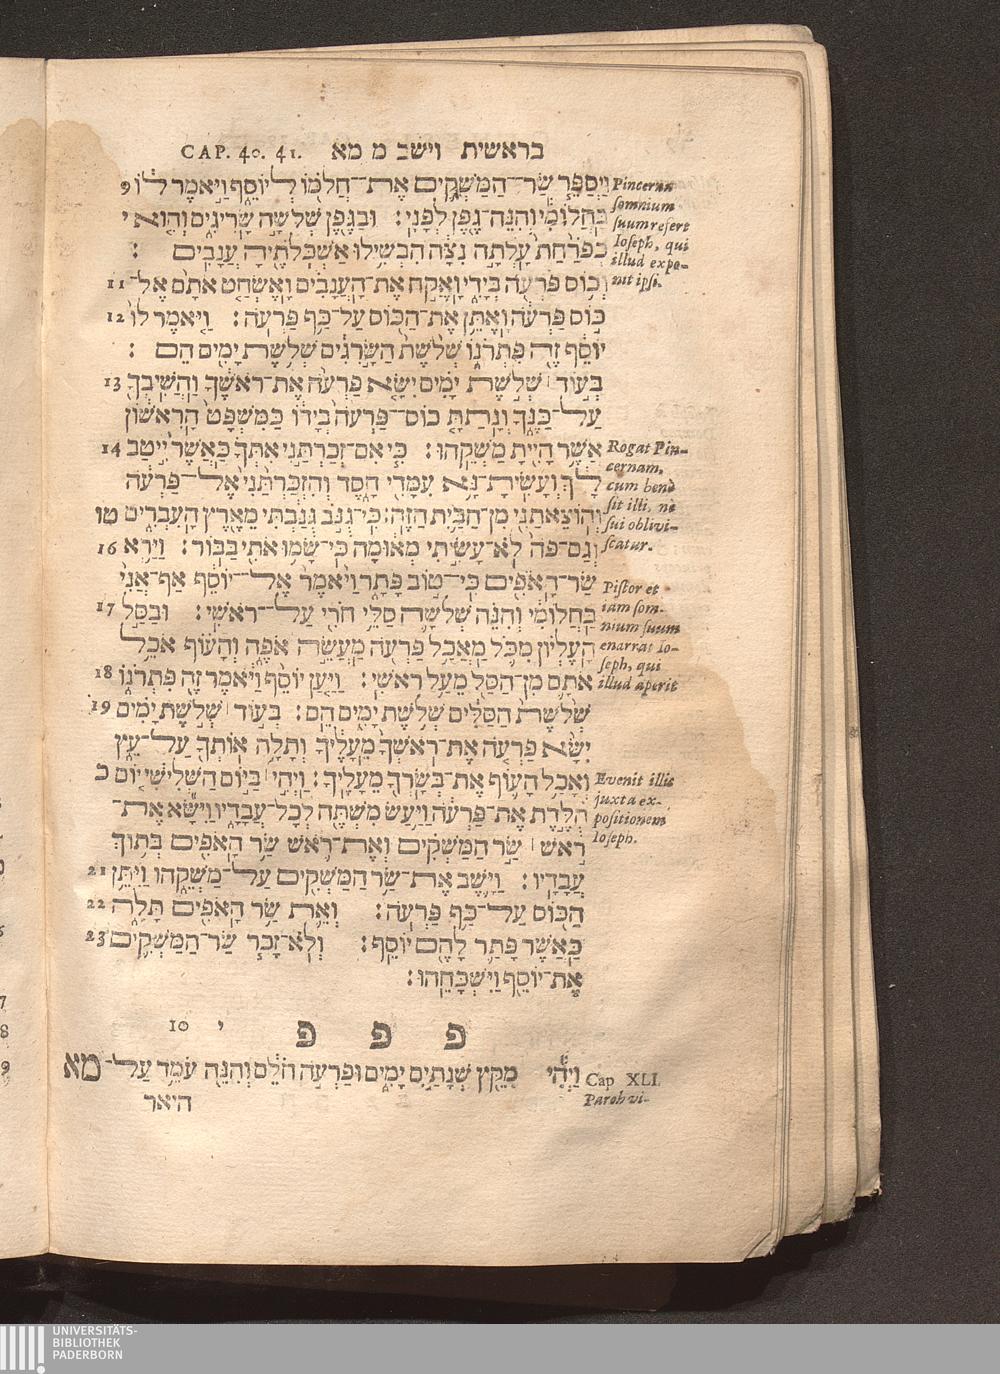 CAP. 40. 41. בראשית וישב מ מא
9 וַיְסַפֵּר שַׂר־הַמַּשְׁקִים אֶת־חֲלֹמוֹ לְיוֹסֵף וַיֹּאמֶר לוֹ
בַּחֲלוֹמִי וְהִנֵּה־גֶפֶן לְפָנָי׃ וּבַגֶּפֶן שְׁלֹשָׁה שָׂרִיגִים וְהִוא י
כְפֹרַחַת עָלְתָה נִצָּהּ הִבְשִׁילוּ אַשְׁכְּלֹתֶיהָ עֲנָבִים׃
11 וְכוֹס פַּרְעֹה בְּיָדִי וָאֶקַּח אֶת־הָעֲנָבִים וָאֶשְׂחַט אֹתָם אֶל־
12 כּוֹס פַּרְעֹה וָאֶתֵּן אֶת־הַכּוֹס עַל־כַּף פַּרְעֹה׃ וַיֹּאמֶר לוֹ
יוֹסֵף זֶה פִּתְרֹנוֹ שְׁלֹשֶׁת הַשָּׂרִגִים שְׁלֹשֶׁת יָמִים הֵם׃
13 בְּעוֹד׀ שְׁלֹשֶׁת יָמִים יִשָּׂא פַרְעֹה אֶת־רֹאשֶׁךָ וַהֲשִׁיבְךָ
עַל־כַּנֶּךָ וְנָתַתָּ כוֹס־פַּרְעֹה בְּיָדוֹ כַּמִּשְׁפָּט הָרִאשׁוֹן
14 אֲשֶׁר הָיִיתָ מַשְׁקֵהוּ׃ כִּי אִם־זְכַרְתַּנִי אִתְּךָ כַּאֲשֶׁר יִיטַב
לָךְ וְעָשִׂיתָ־נָּא עִמָּדִי חָסֶד וְהִזְכַּרְתַּנִי אֶל־פַּרְעֹה
וְהוֹצֵאתַנִי מִן־הַבַּיִת הַזֶּה׃ כִּי־גֻנֹּב גֻּנַּבְתִּי מֵאֶרֶץ הָעִבְרִים טו
16 וְגַם־פֹּה לֹא־עָשִׂיתִי מְאוּמָה כִּי־שָׂמוּ אֹתִי בַּבּוֹר׃ וַיַּרְא
שַׂר־הָאֹפִים כִּי־טוֹב פָּתָר וַיֹּאמֶר אֶל־יוֹסֵף אַף־אֲנִי
17 בַּחֲלוֹמִי וְהִנֵּה שְׁלֹשָׁה סַלֵּי חֹרִי עַל־רֹאשִׁי׃ וּבַסַּל
הָעֶלְיוֹן מִכֹּל מַאֲכַל פַּרְעֹה מַעֲשֵׂה אֹפֶה וְהָעוֹף אֹכֵל
18 אֹתָם מִן־הַסַּל מֵעַל רֹאשִׁי׃ וַיַּעַן יוֹסֵף וַיֹּאמֶר זֶה פִּתְרֹנוֹ
19 שְׁלֹשֶׁת הַסַּלִּים שְׁלֹשֶׁת יָמִים הֵם׃ בְּעוֹד׀ שְׁלֹשֶׁת יָמִים
יִשָּׂא פַרְעֹה אֶת־רֹאשְׁךָ מֵעָלֶיךָ וְתָלָה אוֹתְךָ עַל־עֵץ
וְאָכַל הָעוֹף אֶת־בְּשָׂרְךָ מֵעָלֶיךָ׃ וַיְהִי׀ בַּיּוֹם הַשְּׁלִישִׁי יוֹם כ
הֻלֶּדֶת אֶת־פַּרְעֹה וַיַּעַשׂ מִשְׁתֶּה לְכָל־עֲבָדָיו וַיִּשָּׂא אֶת־
רֹאשׁ׀ שַׂר הַמַּשְׁקִים וְאֶת־רֹאשׁ שַׂר הָאֹפִים בְּתוֹךְ
21 עֲבָדָיו׃ וַיָּשֶׁב אֶת־שַׂר הַמַּשְׁקִים עַל־מַשְׁקֵהוּ וַיִּתֵּן
22 הַכּוֹס עַל־כַּף פַּרְעֹה׃ וְאֵת שַׂר הָאֹפִים תָּלָה
23 כַּאֲשֶׁר פָּתַר לָהֶם יוֹסֵף׃ וְלֹא־זָכַר שַׂר־הַמַּשְׁקִים
אֶת־יוֹסֵף וַיִּשְׁכָּחֵהוּ׃
פ פ פ י 10
וַיְהִי מִקֵּץ שְׁנָתַיִם יָמִים וּפַרְעֹה חֹלֵם וְהִנֵּה עֹמֵד עַל־ מא
היאר
Pincerna
somnium
suum refert
Ioseph, qui
illud expo-
nit ipsi.
Rogat Pin-
cernam,
cum benè
sit illi, ne
sui oblivi-
scatur.
Pistor et
iam som-
nium suum
enarrat Io-
seph, qui
illud aperit
Evenit illis
juxta ex-
positionem
Ioseph.
Cap XLI.
Paroh vi-
7
8
9
UNIVERSITÄTS-
BIBLIOTHEK
PADERBORN